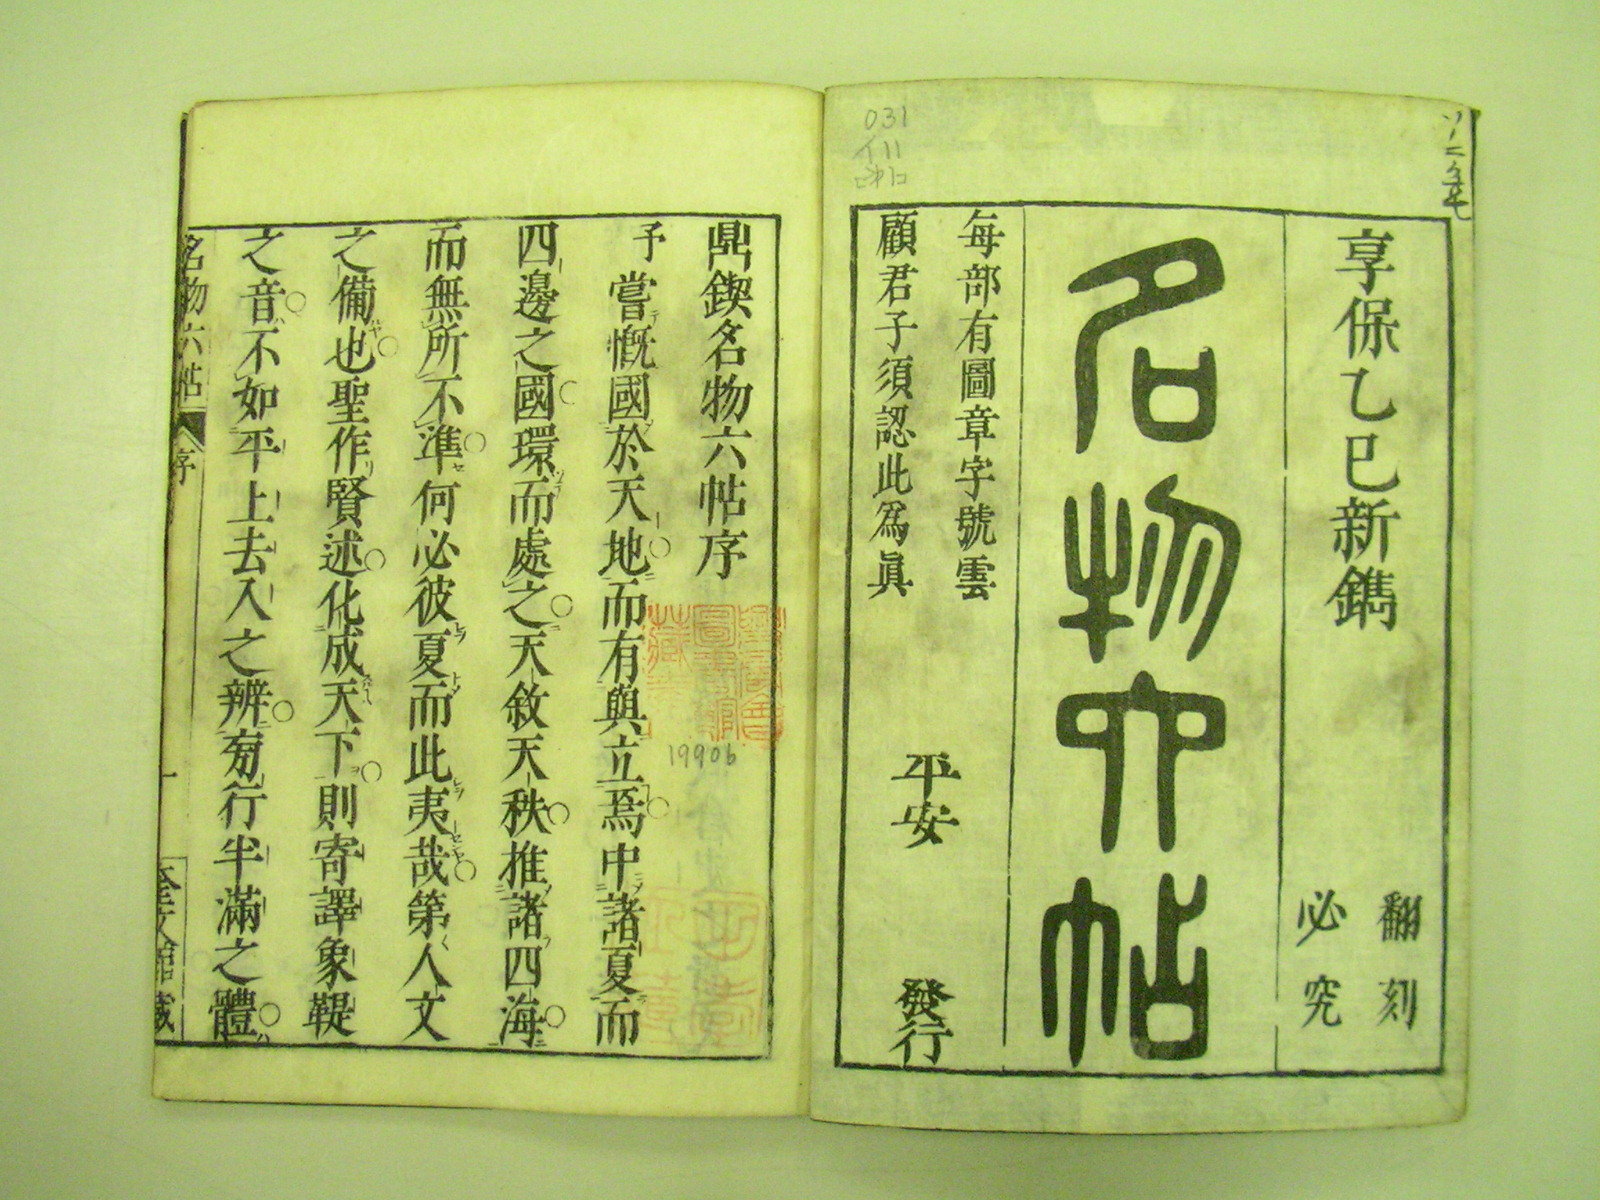 享保乙巳新鐫
翻刻
必究
名物六帖
每部有圖章字號雲
顧君子須認此為眞
平安
發行
031
鼎鍥名物六帖序
予嘗慨國於天地而有與立焉中諸夏而
四邊之國環而處之天敘天秩推諸四海
而無所不準何必彼夏而此夷哉第人文
之備也聖作賢述化成天下則寄譯象鞮
之音不如平上去入之辨旁行半滿之體
19906
名物六帖
序
一
奎文館藏